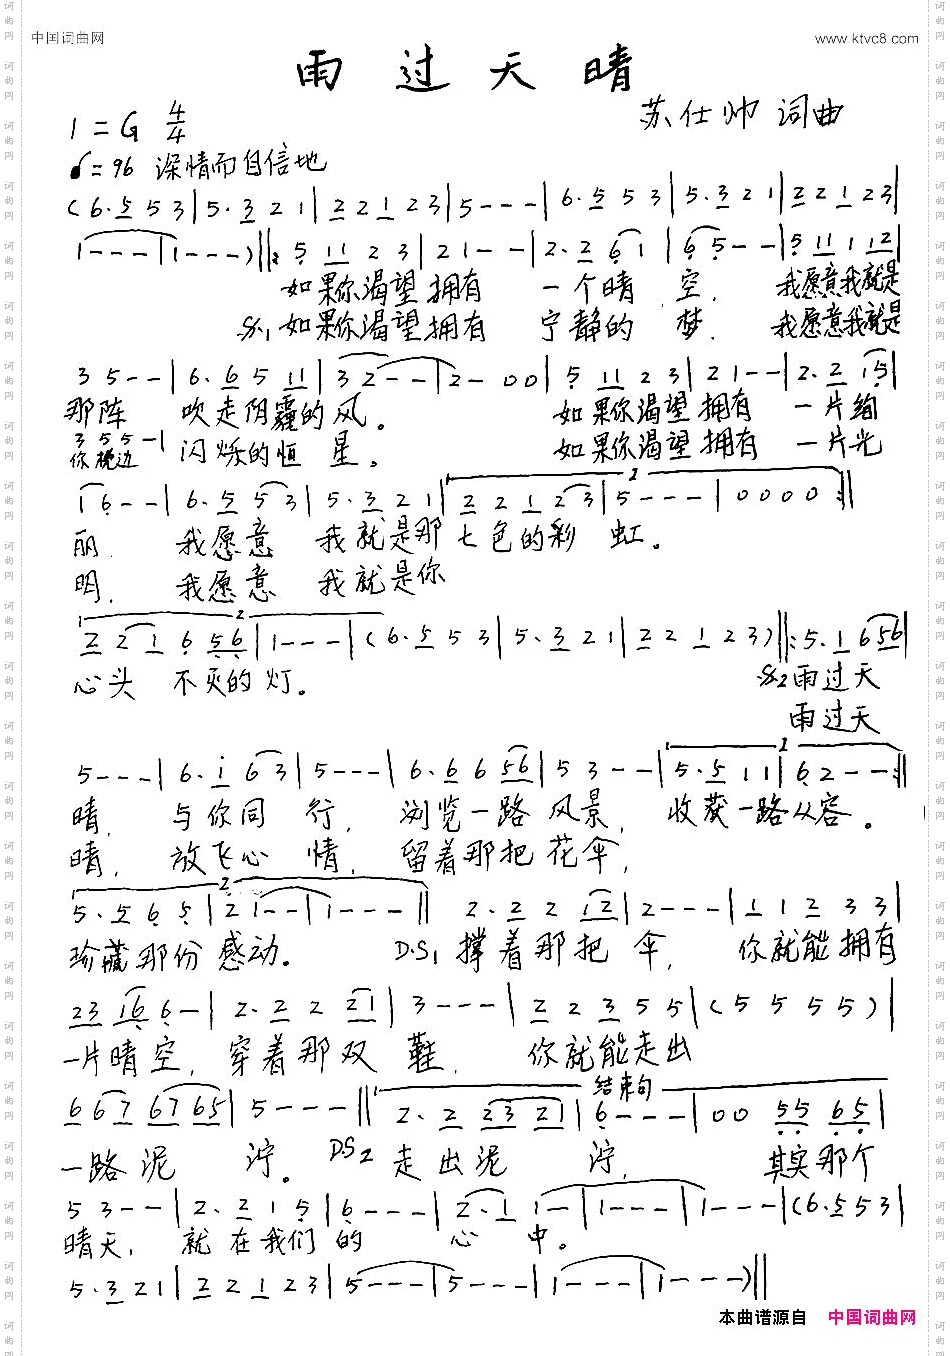 中国词曲网 www.ktvc8.com
雨过天晴
1=G 4/4 苏仕帅 词曲
♩=96 深情而自信地
(6·5 5 3|5·3 2 1|2 2 1 2 3|5---|6·5 5 3|5·3 2 1|2 2 1 2 3|
1---|1---)‖:5 1 1 2 3|2 1--|2·2 6 1|6 5--|5 1 1 1 1 2|
如果你渴望拥有 一个晴 空. 我愿意我就是
𝄋1 如果你渴望拥有 宁静的 梦. 我愿意我就是
3 5--|6·6 5 1 1|3 2--|2-0 0|5 1 1 2 3|2 1--|2·2 1 5|
那阵 吹走阴霾的风。 如果你渴望拥有 一片绚
3 5 5 5-|
你晚边 闪烁的恒 星。 如果你渴望拥有 一片光
1 6--|6·5 5 3|5·3 2 1|2 2 1 2 3|5---|0 0 0 0:‖
丽. 我愿意 我就是那七色的彩 虹。
明. 我愿意 我就是你
2 2 1 6 5 6|1---|(6·5 5 3|5·3 2 1|2 2 1 2 3)‖:5·1 6 5 6|
心头 不灭的灯。 𝄋2 雨过天
雨过天
5---|6·i 6 3|5---|6·6 6 5 6|5 3--|5·5 1 1|6 2--:‖
晴, 与你同 行, 浏览一路 风景, 收获一路从容。
晴, 放飞心 情, 留着那把 花伞,
5·5 6 5|2 1--|1---‖2·2 2 1 2|2---|1 1 2 3 3|
珍藏那份 感动。 D.S1 撑着那把 伞, 你就能拥有
2 3 1 6 6-|2·2 2 2 1|3---|2 2 3 5 5|(5 5 5 5)|
一片晴空, 穿着那双 鞋, 你就能走出
结束句
6 6 7 6 7 6 5|5---‖2·2 2 3 2 1|6---|0 0 5 5 6 5|
一路泥 泞。 DS2 走出泥 泞, 其实那个
5 3--|2·2 1 5|6---|2·1 1-|1---|1---|(6·5 5 3|
晴天, 就在我们的 心 中。
5·3 2 1|2 2 1 2 3|5---|5---|1---|1---)‖
本曲谱源自 中国词曲网